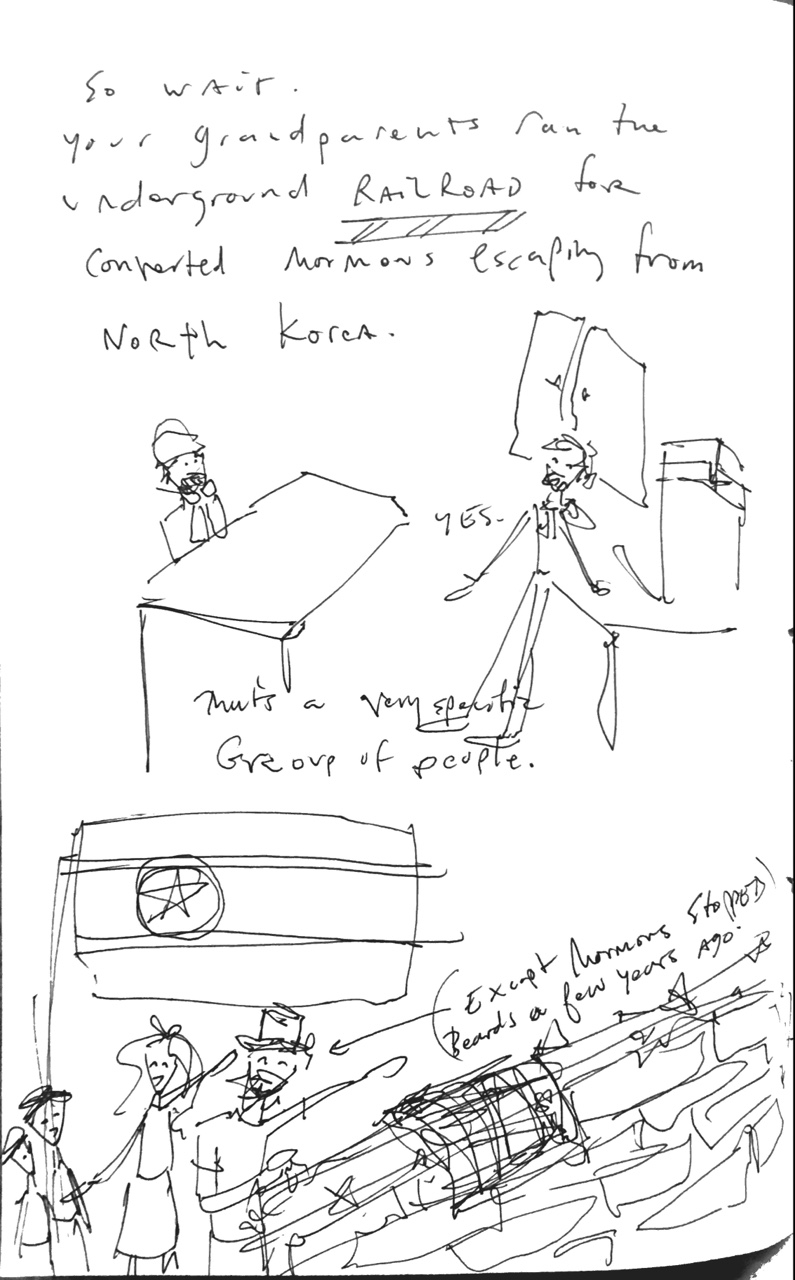 So wait.
your grandparents ran the
underground RAILROAD for
converted mormons escaping from
North Korea.
YES.
That's a very specific
Group of people.
(Except Mormons StoPPED
Beards a few years ago.)